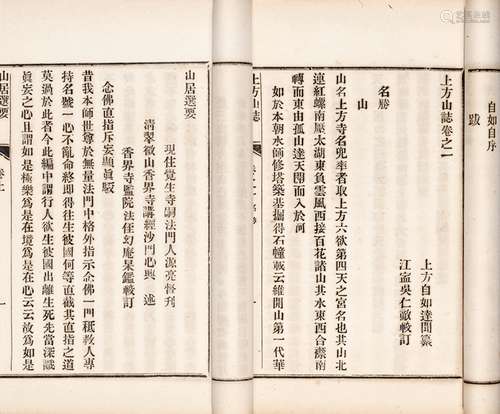 自如自序
跋
上方山誌卷之一
上方自如達聞纂
江寧吳仁敵較訂
名勝
山
山名上方寺名兜率者取上方六欲第四天之宮名也其山北
連紅螺南壓太湖東負雲風西接百花諸山其水東西合南
轉而東由孤山達天開而入於河
如於本朝水師修塔築基掘得石幢載云維開山第一代華
上方山誌
卷之一
一
山居選要
現住覺生寺嗣法門人源亮督刊
清翠微山香界寺講經沙門心興 述
香界寺監院法侄幻庵杲鑑較訂
念佛直指斥妄顯眞駁
昔我本師世尊於無量法門中格外指示念佛一門秪教人專
持名號一心不亂命終即得往生彼國何等直截其直指之道
莫過於此者今此編中謂行人欲生彼國出離生死先當深識
眞妄之心且謂如是極樂爲是在境爲是在心云云故爲如是
山居選要
卷上
一